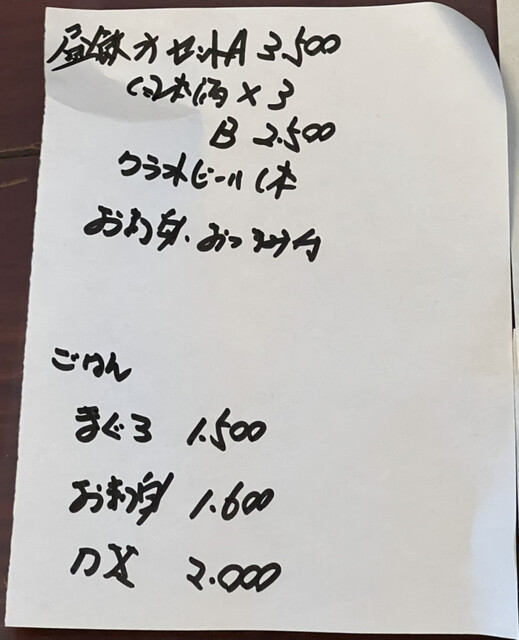 昼飲みセットA 3.500
日本酒×3
B 2.500
クラフトビール1本
お刺身、おつまみ付
ごはん
まぐろ 1.500
お刺身 1.600
DX 2.000